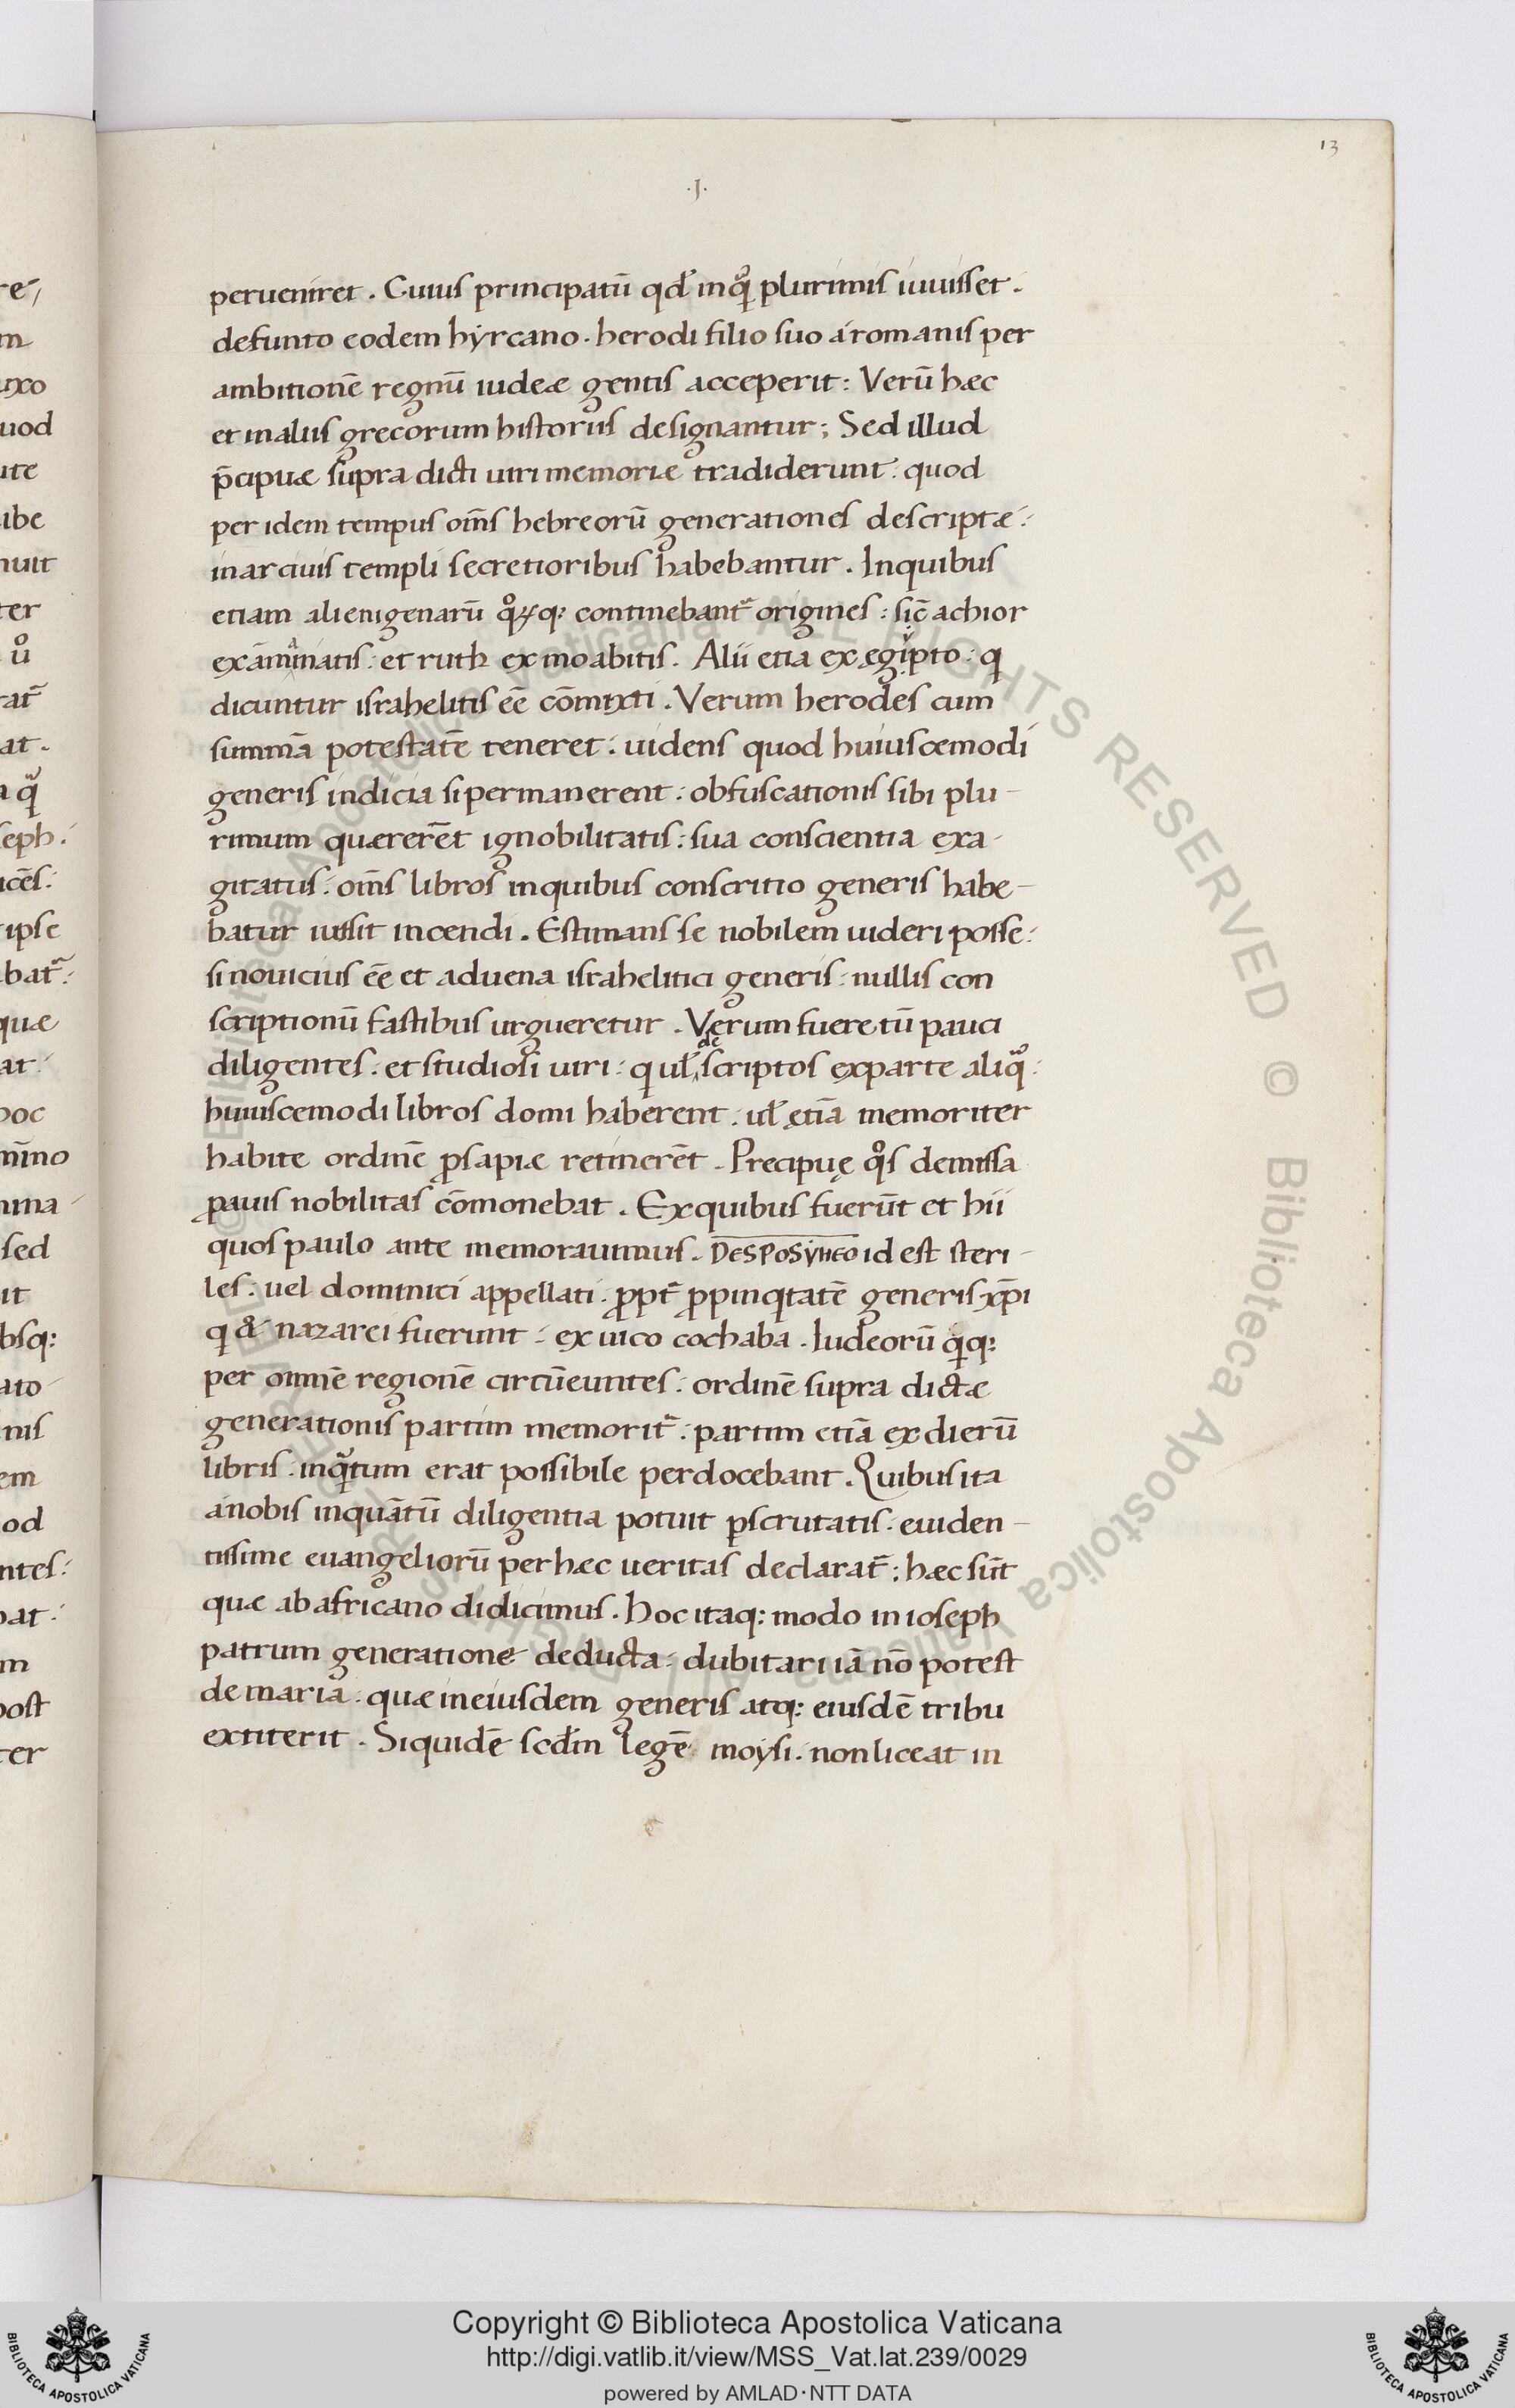 13
.J.
perueniret. Cuius principatū qđ inqͦ plurimis iuuisset.
defunto eodem hyrcano. herodi filio suo a romanis per
ambitionē regnū iudeæ gentis acceperit: Verū hæc
et in aliis grecorum historiis designantur; Sed illud
p̄cipuæ supra dicti uiri memoriæ tradiderunt: quod
per idem tempus om̄s hebreorū generationes descriptæ:
in arciuis templi secretioribus habebantur. In quibus
etiam alienigenarū qͦꝝq: continebant᷑ origines: sic̄ achior
ex āmanatis: et ruth ex moabitis. Alii etia ex ęgypto: q
dicuntur israhelitis eē cōmixti. Verum herodes cum
summā potestatē teneret: uidens quod huiuscemodi
generis indicia si permanerent: obfuscationis sibi plu-
rimum quærerēt ignobilitatis: sua conscientia exa-
gitatus: om̄s libros in quibus conscritio generis habe-
batur iussit incendi. Estimans se nobilem uideri posse:
si nouicius eē et aduena israhelitici generis: nullis con
scriptionū fastibus urgueretur. Verum fuere tū pauci
diligentes: et studiosi uiri: qui uł descriptos ex parte aliqͦ:
huiuscemodi libros domi haberent: uł ętiā memoriter
habite ordinē ꝓsapiæ retinerēt. Precipuę qͦs demissa
ꝓauis nobilitas cōmonebat. Ex quibus fuerūt et hii
quos paulo ante memorauimus. DESPOSYNEO id est steri-
les: uel dominici appellati. ꝓpt᷑ ꝓpinqitatē generis xp̄i
q & nazarei fuerunt: ex uico cochaba. Iudeorū qiq:
per omnē regionē circūeuntes: ordinē supra dictæ
generationis partim memorit᷑: partim etiā ex dierū
libris: inqͣtum erat possibile perdocebant. Quibus ita
a nobis inquātū diligentia potuit ꝑscrutatis: euiden-
tissime euangeliorū per hæc ueritas declarat᷑; hæc sūt
quæ ab africano didicimus. hoc itaq: modo in ioseph
patrum generatione deducta: dubitari iā nō potest
de maria: quæ in eiusdem generis atq: eiusdē tribu
extiterit. Siquidē scd̄m legē moysi. non liceat in
Copyright © Biblioteca Apostolica Vaticana
http://digi.vatlib.it/view/MSS_Vat.lat.239/0029
powered by AMLAD·NTT DATA